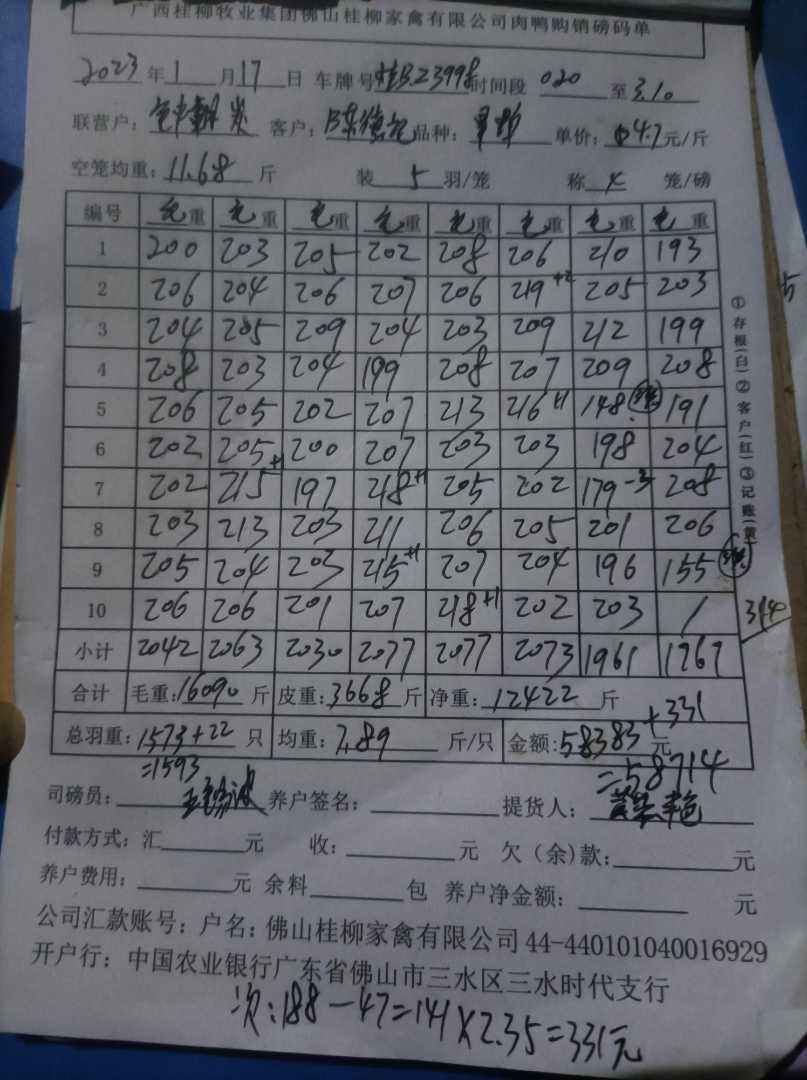 广西桂柳牧业集团佛山桂柳家禽有限公司肉鸭购销磅码单
2023 年 1 月 17 日 车牌号 桂B23998 时间段 020 至 3.10
联营户: 客户: 品种: 单价: 4.7 元/斤
空笼均重: 11.68 斤 装 5 羽/笼 称 笼/磅
编号 毛重 毛重 毛重 毛重 毛重 毛重 毛重 毛重
1 200 203 205 202 208 206 210 193
2 206 204 206 207 206 219+2 205 203
3 204 205 209 204 203 209 212 199
4 208 203 204 199 208 207 209 208
5 206 205 202 207 213 216+1 148. 191
6 202 205 200 207 203 203 198 204
7 202 215+1 197 218+1 205 202 179-3 208
8 203 213 203 211 206 205 201 206
9 205 204 203 215+1 207 204 196 155
10 206 206 201 207 218+1 202 203 /
314
小计 2042 2063 2030 2077 2077 2073 1961 1767
合计 毛重: 16090 斤 皮重: 3668 斤 净重: 12422 斤
总羽重: 1573+22 只 均重: 7.89 斤/只 金额: 58383 元 +331
=1593 =58714
司磅员: 养户签名: 提货人:
付款方式: 汇 元 收: 元 欠(余)款: 元
养户费用: 元 余料 包 养户净金额: 元
公司汇款账号: 户名: 佛山桂柳家禽有限公司 44-440101040016929
开户行: 中国农业银行广东省佛山市三水区三水时代支行
次: 188-47=141×2.35=331元
①存根(白)②客户(红)③记账(黄)